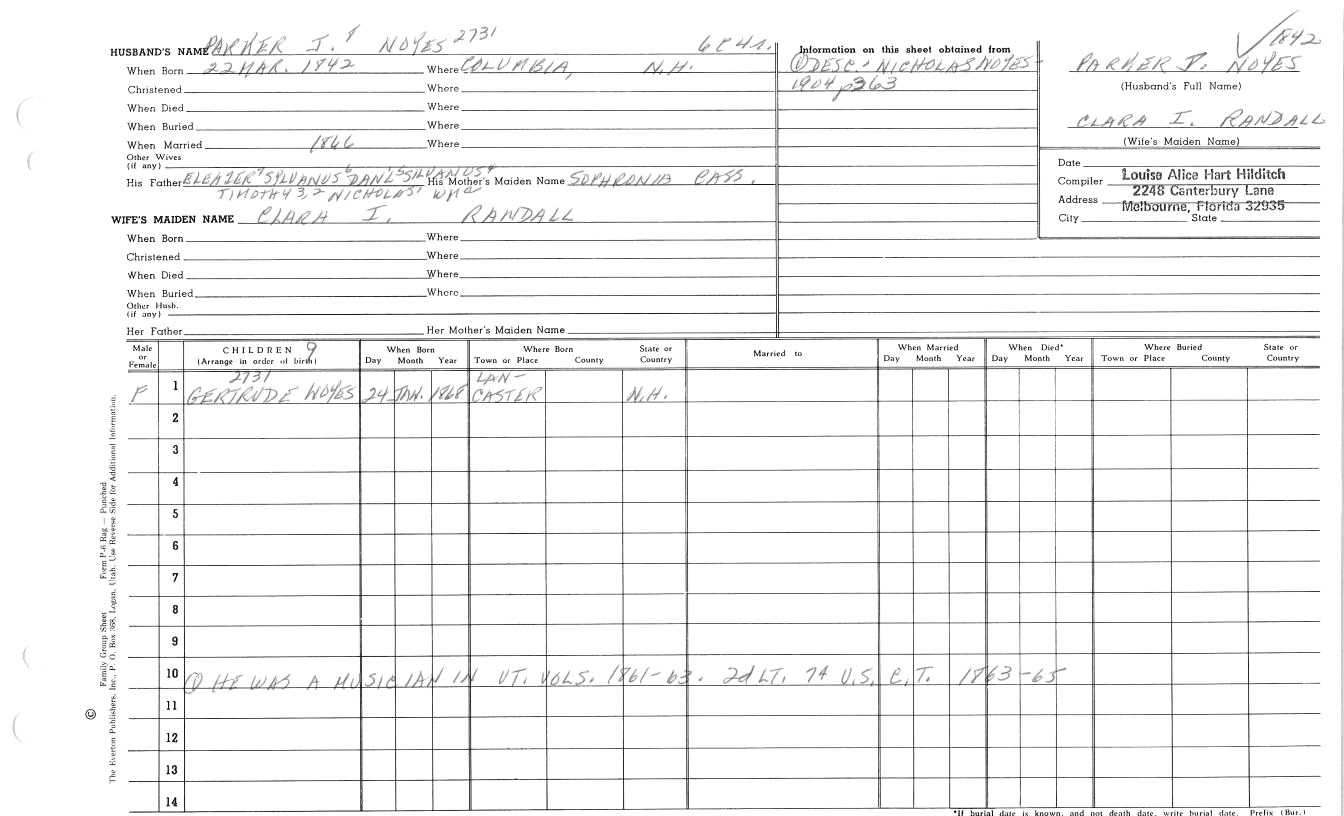 HUSBAND'S NAME PARKER J. 8 NOYES 2731 6C41.
When Born 22 MAR. 1842 Where COLUMBIA, N.H.
Christened Where
When Died Where
When Buried Where
When Married 1866 Where
Other Wives
(if any)
His Father ELEAZER 7 SYLVANUS 6 DAN'L 5 SILVANUS 4 His Mother's Maiden Name SOPHRONIA CASS.
TIMOTHY 3, 2 NICHOLAS 1 WM
WIFE'S MAIDEN NAME CLARA I. RANDALL
When Born Where
Christened Where
When Died Where
When Buried Where
Other Husb.
(if any)
Her Father Her Mother's Maiden Name
Information on this sheet obtained from
① DESC. NICHOLAS NOYES-
1904 p363
✓ 1842
PARKER J. NOYES
(Husband's Full Name)
CLARA I. RANDALL
(Wife's Maiden Name)
Date
Compiler Louise Alice Hart Hilditch
Address 2248 Canterbury Lane
Melbourne, Florida 32935
City State
Male or Female CHILDREN 9 (Arrange in order of birth) When Born Day Month Year Where Born Town or Place County State or Country Married to When Married Day Month Year When Died* Day Month Year Where Buried Town or Place County State or Country
2731 LAN-
F 1 GERTRUDE NOYES 24 JAN. 1868 CASTER N.H.
2
3
4
5
6
7
8
9
10 ① HE WAS A MUSICIAN IN VT. VOLS. 1861-63. 2d LT. 74 U.S. C.T. 1863-65
11
12
13
14
*If burial date is known, and not death date, write burial date. Prefix (Bur.)
Family Group Sheet Form P-6 Rag — Punched
© The Everton Publishers, Inc., P. O. Box 368, Logan, Utah. Use Reverse Side for Additional Information.